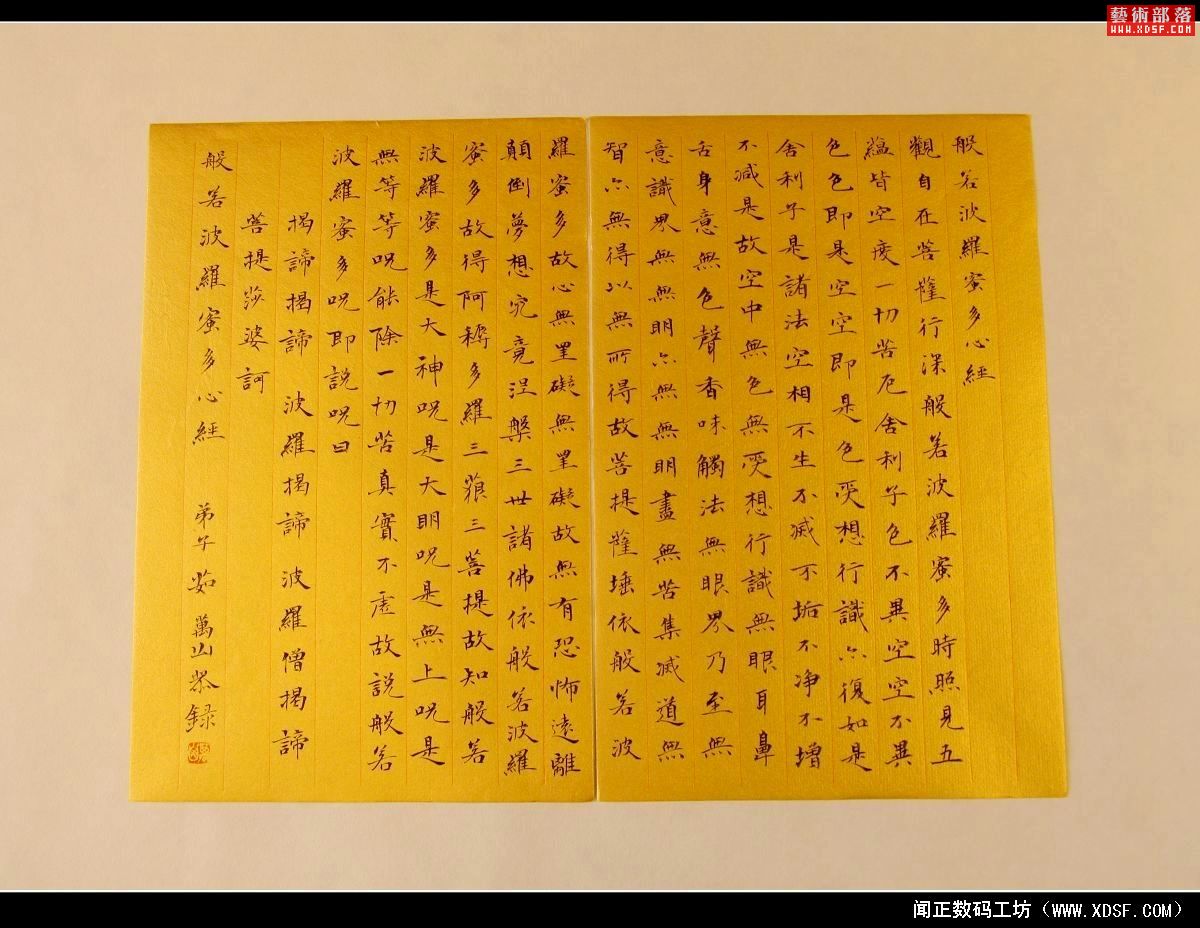 藝術部落
WWW.XDSF.COM
般若波羅蜜多心經
觀自在菩薩行深般若波羅蜜多時照見五
蘊皆空度一切苦厄舍利子色不異空空不異
色色即是空空即是色受想行識亦復如是
舍利子是諸法空相不生不滅不垢不净不增
不減是故空中無色無受想行識無眼耳鼻
舌身意無色聲香味觸法無眼界乃至無
意識界無無明亦無無明盡無苦集滅道無
智亦無得以無所得故菩提薩埵依般若波
羅蜜多故心無罣礙無罣礙故無有恐怖遠離
顛倒夢想究竟涅槃三世諸佛依般若波羅
蜜多故得阿耨多羅三藐三菩提故知般若
波羅蜜多是大神呪是大明呪是無上呪是
無等等呪能除一切苦真實不虛故説般若
波羅蜜多呪即説呪曰
揭諦揭諦 波羅揭諦 波羅僧揭諦
菩提莎婆訶
般若波羅蜜多心經 弟子茹萬山恭録
闻正数码工坊（WWW.XDSF.COM）